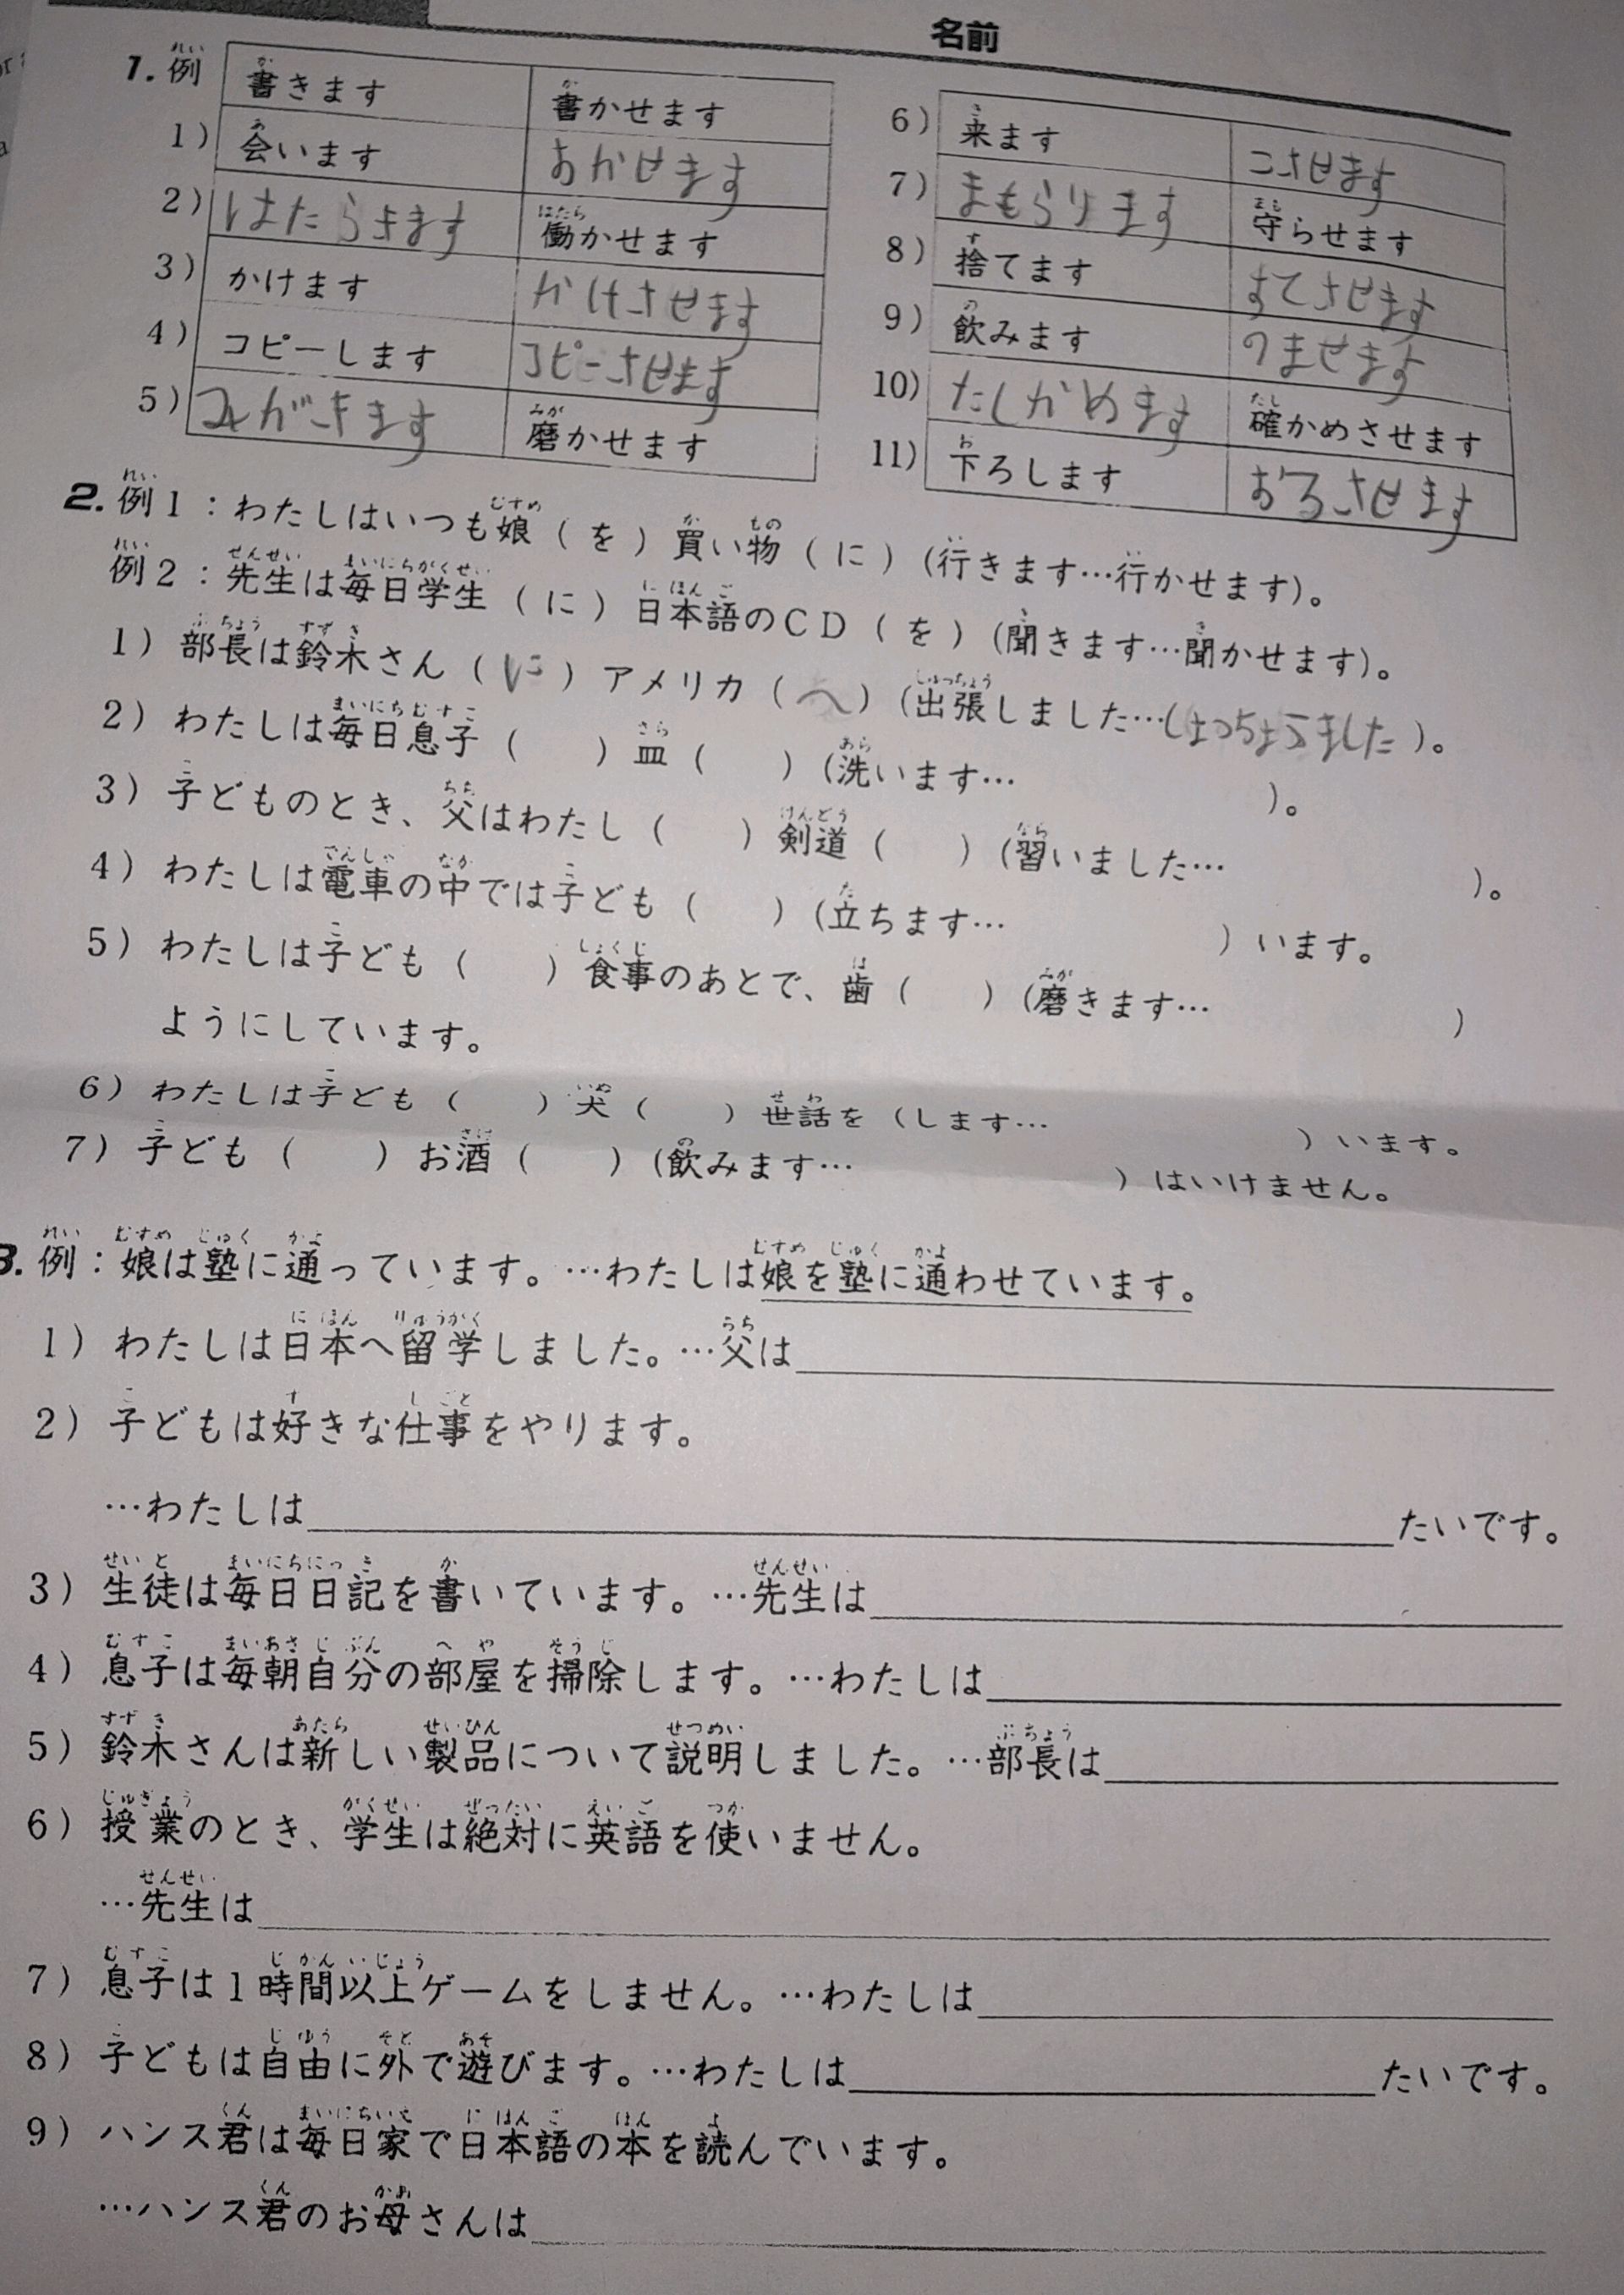 名前
1. 例 書きます 書かせます
1) 会います おかせます
2) はたらきます 働かせます
3) かけます かけさせます
4) コピーします コピーさせます
5) みがきます 磨かせます
6) 来ます こさせます
7) まもらります 守らせます
8) 捨てます すてさせます
9) 飲みます のませます
10) たしかめます 確かめさせます
11) 下ろします おろさせます
2. 例1：わたしはいつも娘（を）買い物（に）（行きます…行かせます）。
例2：先生は毎日学生（に）日本語のCD（を）（聞きます…聞かせます）。
1) 部長は鈴木さん（に）アメリカ（へ）（出張しました… ）。
2) わたしは毎日息子（ ）皿（ ）（洗います… ）。
3) 子どものとき、父はわたし（ ）剣道（ ）（習いました… ）。
4) わたしは電車の中では子ども（ ）（立ちます… ）います。
5) わたしは子ども（ ）食事のあとで、歯（ ）（磨きます… ）
ようにしています。
6) わたしは子ども（ ）犬（ ）世話を（します… ）います。
7) 子ども（ ）お酒（ ）（飲みます… ）はいけません。
3. 例：娘は塾に通っています。…わたしは娘を塾に通わせています。
1) わたしは日本へ留学しました。…父は
2) 子どもは好きな仕事をやります。
…わたしは たいです。
3) 生徒は毎日日記を書いています。…先生は
4) 息子は毎朝自分の部屋を掃除します。…わたしは
5) 鈴木さんは新しい製品について説明しました。…部長は
6) 授業のとき、学生は絶対に英語を使いません。
…先生は
7) 息子は1時間以上ゲームをしません。…わたしは
8) 子どもは自由に外で遊びます。…わたしは たいです。
9) ハンス君は毎日家で日本語の本を読んでいます。
…ハンス君のお母さんは